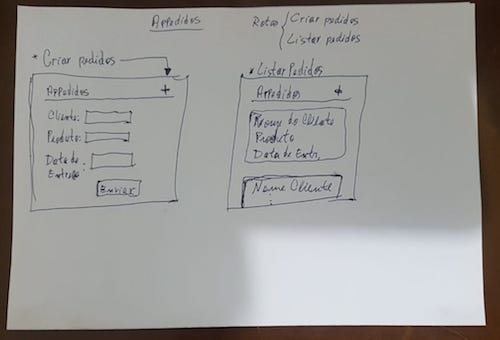 Appedidos
Rotas { Criar pedidos
Listar pedidos
* Criar pedidos
Appedidos +
Cliente:
Produto:
Data de
Entrega:
Enviar
* Listar Pedidos
Appedidos +
Nome do Cliente
Produto
Data de Entr.
Nome Cliente